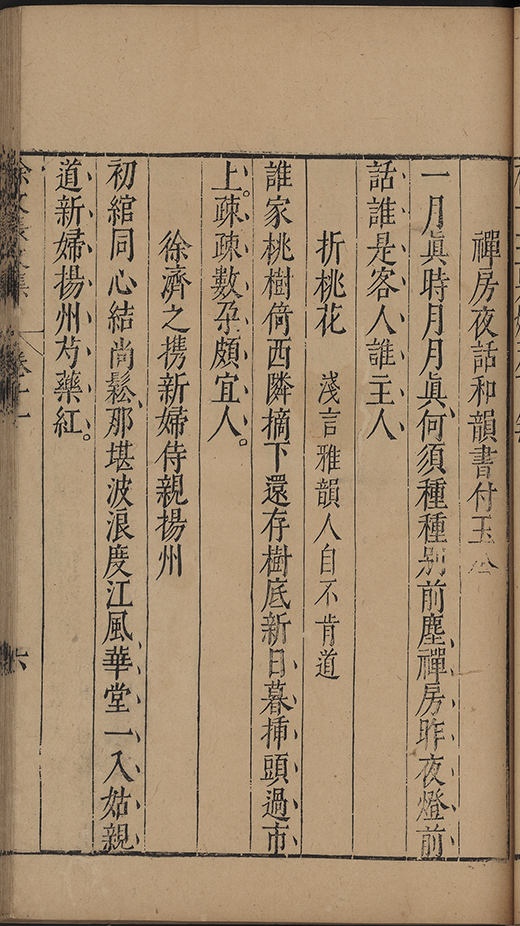 禪房夜話和韻書付玉公
一月眞時月月眞何須種種别前塵禪房昨夜燈前
話誰是客人誰主人
折桃花 淺言雅韻人自不肯道
誰家桃樹倚西隣摘下還存樹底新日暮揷頭過市
上。疎疎數朶頗宜人。
徐濟之携新婦侍親揚州
初綰同心結尚鬆那堪波浪度江風華堂一入姑親
道新婦揚州芍藥紅。
徐文長文集 卷十一 六